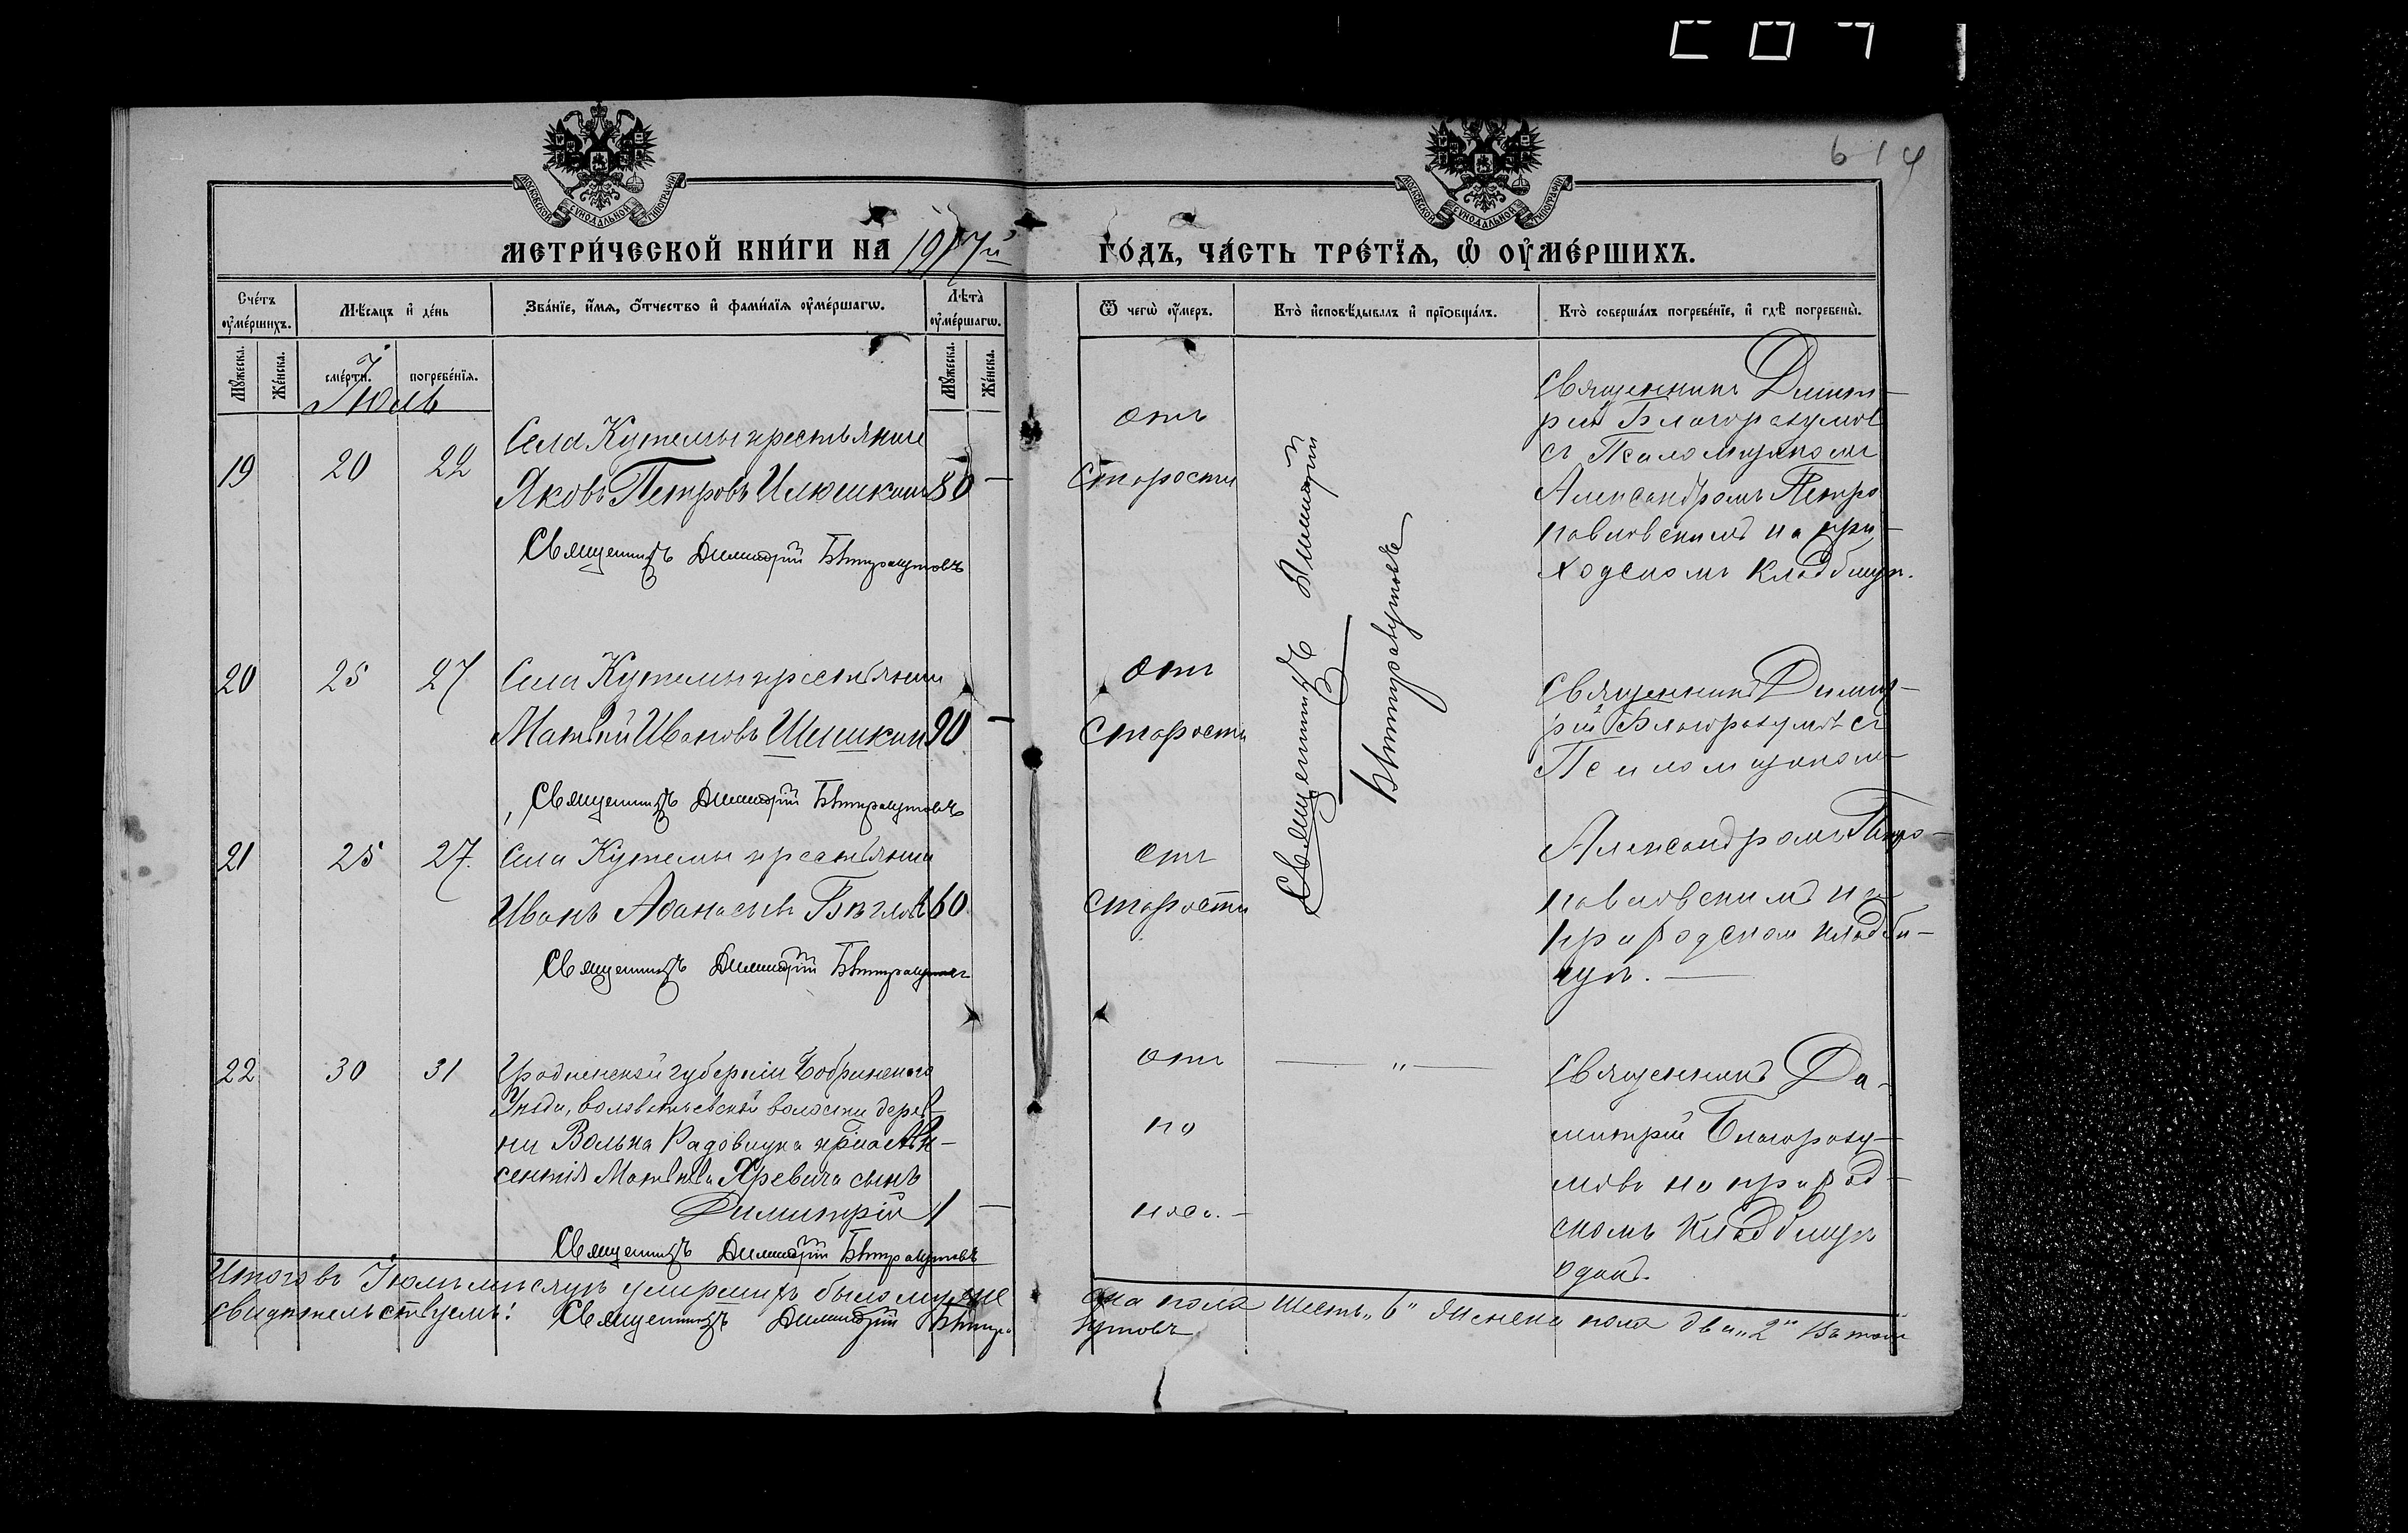 614
МОСКОВСКОЙ СѴНОДАЛЬНОЙ ТИПОГРАФІИ
МОСКОВСКОЙ СѴНОДАЛЬНОЙ ТИПОГРАФІИ
МЕТРИ́ЧЕСКОЙ КНИ́ГИ НА 1917й ГО́ДЪ, ЧА́СТЬ ТРЕ́ТЇѦ, Ѽ ОУ҆МЕ́РШИХЪ.
Сче́тъ оу҆ме́ршихъ.
Мѣ́сяцъ и҆ де́нь
Зва́нїе, и҆́мя, ѻ҆́тчество и҆ фами́лїя оу҆ме́ршагѡ.
Лѣ́та оу҆ме́ршагѡ.
Ѿ чегѡ̀ оу҆́меръ.
Кто̀ и҆сповѣ́дывалъ и҆ прїѡбща́лъ.
Кто̀ соверша́лъ погребе́нїе, и҆ гдѣ̀ погребены̀.
Мꙋ́жеска.
Же́нска.
сме́рти.
погребе́нїя.
Мꙋ́жеска.
Же́нска.
Іюль
19 20 22
Села Кутемы крестьянинъ
Яковъ Петровъ Илюшкинъ 80 —
Священникъ Димитрій Благоразумовъ
отъ
старости
Священникъ Димитрій
Благоразумовъ
Священникъ Димит-
рій Благоразумовъ
съ Псаломщикомъ
Александромъ Петро
павловскимъ на при-
ходскомъ кладбищѣ.
20 25 27
Села Кутемы крестьянинъ
Матвѣй Ивановъ Шишкинъ 90 —
Священникъ Димитрій Благоразумовъ
отъ
старости
Священникъ Димит-
рій Благоразумовъ съ
Псаломщикомъ
21 25 27.
Села Кутемы крестьянинъ
Иванъ Аѳанасьевъ Бѣгловъ 60
Священникъ Димитрій Благоразумовъ
отъ
старости
Александромъ Петро-
павловскимъ на
приходскомъ кладби-
щѣ. —
22 30 31
Гродненской губерніи Кобринскаго
Уѣзда, волости дерев-
ни Матвѣева сынъ
Димитрій 1 —
Священникъ Димитрій Благоразумовъ
отъ
по
носа. —
— „ —
Священникъ Ди-
митрій Благоразу-
мовъ на приход-
скомъ кладбищѣ
одинъ.
Итого въ Іюлѣ мѣсяцѣ умершихъ было муже
ска пола шесть „6“ женска пола два „2“ въ томъ
свидѣтельствуемъ: Священникъ Димитрій Благора
зумовъ